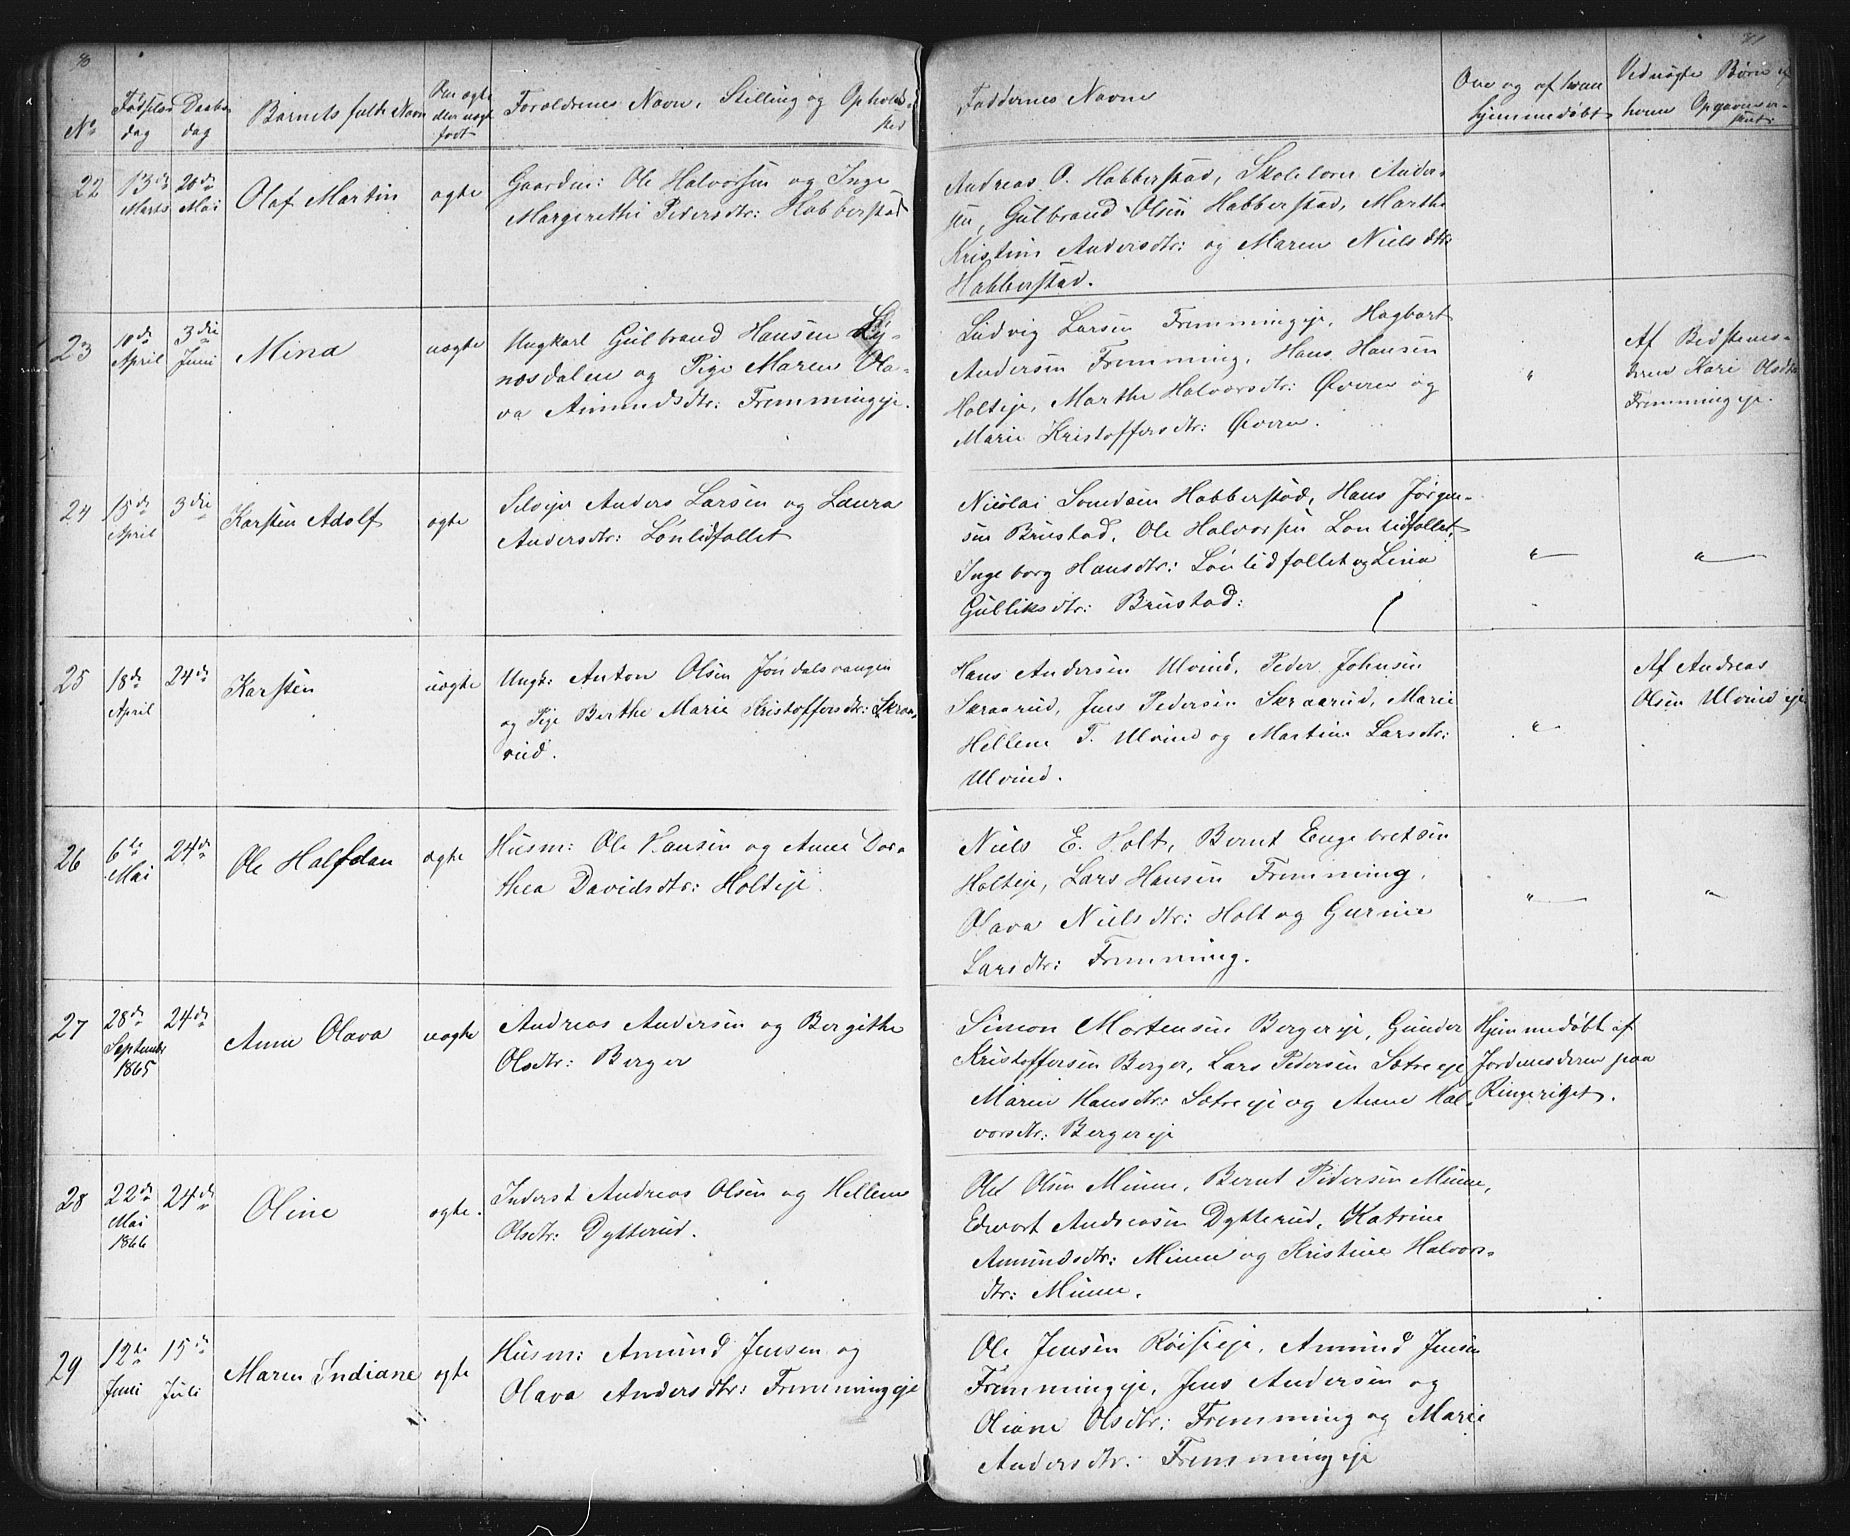 No
Fødsels
dag
Daabs
dag
Barnets fulde Navn
Om ægte
eller uægte
født
Forældrenes Navn, Stilling og Opholds
sted
Faddernes Navne
Om og af hvem
hjemmedøbt
Ved uægte Børn af
hvem Opgaven er
skeet
22
13de
Marts
20de
Mai
Olaf Martin
ægte
Gaardm: Ole Halvorsen og Inge
Margerethe Pedersdtr: Habberstad
Andreas O. Habberstad, Skolelærer Ander-
sen, Gulbrand Olsen Habberstad, Marthe
Kristine Andersdtr: og Maren Nielsdtr:
Habberstad.
23
10de
April
3die
Juni
Mina
uægte
Ungkarl Gulbrand Hansen Ly-
næsdalen og Pige Maren Ola-
va Amundsdtr: Fremmingeje.
Ludvig Larsen Fremmingeje, Hagbart
Andersen Fremming, Hans Hansen
Holteje, Marthe Halvorsdtr: Øveren og
Marie Kristoffersdtr: Øveren.
"
Af Bedstemo-
deren Kari Olsdtr
Fremmingeje.
24
15de
April
3die
Karsten Adolf
ægte
Selvejer Anders Larsen og Laura
Andersdtr: Lønlidfallet
Nicolai Svendsen Habberstad, Hans Jørgen-
sen Brustad, Ole Halvorsen Lønlidfallet,
Ingeborg Hansdtr: Lønlidfallet og Lina
Gulliksdtr: Brustad:
"
"
25
18de
April
24de
Karsten
uægte
Ungk: Anton Olsen Jøndalsvangen
og Pige Berthe Marie Kristoffersdtr: Skraa-
rud.
Hans Andersen Ulvind, Peder Johnsen
Skraarud, Jens Pedersen Skraarud, Marie
Hellene T. Ulvind og Martine Larsdtr:
Ulvind.
"
Af Andreas
Olsen Ulvindeje
26
6te
Mai
24de
Ole Halfdan
ægte
Husm: Ole Hansen og Anne Doro
thea Davidsdtr: Holteje.
Niels E. Holt, Bernt Engebretsen
Holteje, Lars Hansen Fremming,
Olava Nielsdtr: Holt og Gurine
Larsdtr: Fremming.
"
"
27
28de
September
1865
24de
Anne Olava
uægte
Andreas Andersen og Bergitthe
Olsdtr: Berger
Simon Mortensen Bergereje, Gunder
Kristoffersen Berger, Lars Pedersen Sætreeje
Maren Hansdtr: Sætreeje og Anne Hal-
vorsdtr: Bergereje
Hjemmedøbt af
Jordemoderen paa
Ringeriget.
28
22de
Mai
1866
24de
Oline
ægte.
Inderst Andreas Olsen og Hellene
Olsdtr: Dytterud.
Ole Olsen Minne, Bernt Pedersen Minne,
Edvart Andreasen Dytterud, Katrine
Amundsdtr: Minne og Kristine Halvors-
dtr: Minne.
29
12te
Juni
15de
Juli
Maren Indiane
ægte
Husm: Amund Jensen og
Olava Andersdtr: Fremmingeje
Ole Jensen Røiseje, Amund Jensen
Fremmingeje, Jens Andersen og
Oliane Olsdtr: Fremming og Marie
Andersdtr: Fremmingeje